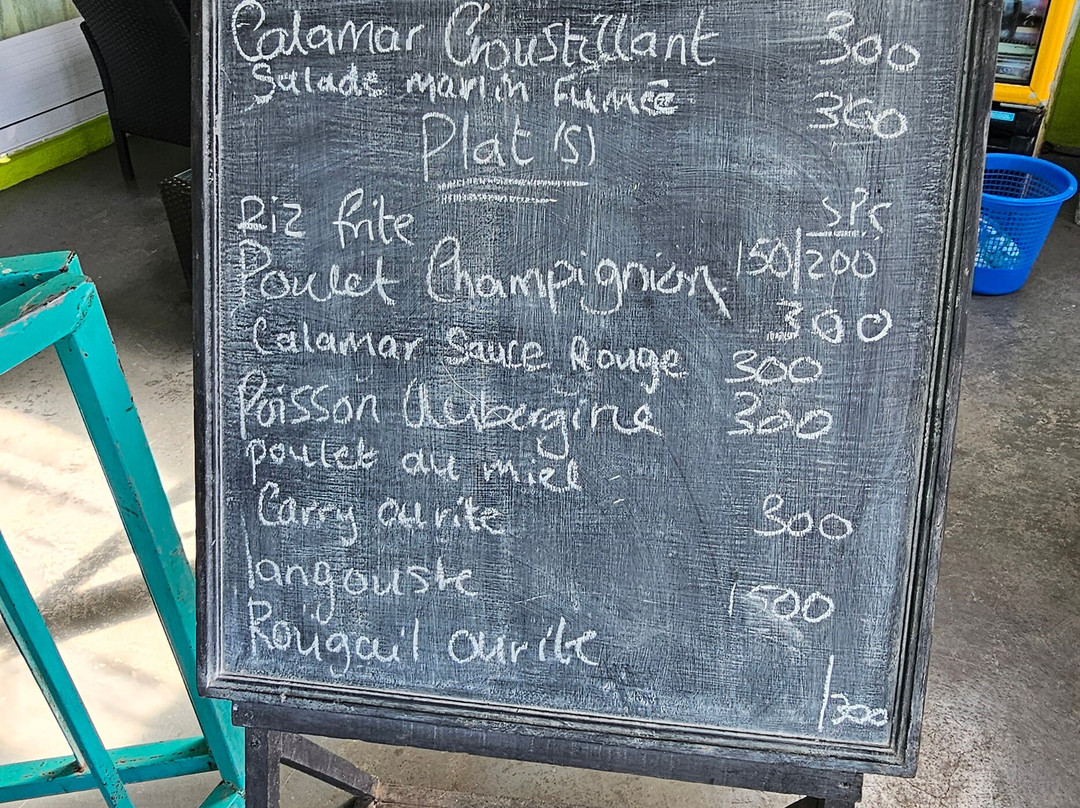 Calamar Croustillant 300
Salade marlin Fumée 300
Plat (S)
Riz frite SPS
Poulet Champignion 150/200
300
Calamar Sauce Rouge 300
Poisson Aubergine 300
poulet au miel
Carry ourite 300
langouste 1500
Rougail ourite
/300